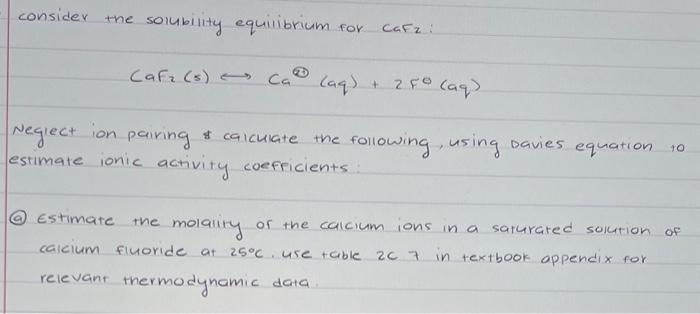 consider the solubility equilibrium for CaF₂:
CaF₂ (s) ⟷ Ca²⁺ (aq) + 2 F⊖ (aq)
Neglect ion pairing & calculate the following, using Davies equation to
estimate ionic activity coefficients:
ⓐ Estimate the molality of the calcium ions in a saturated solution of
calcium fluoride at 25°C. use table 2C 7 in textbook appendix for
relevant thermodynamic data.